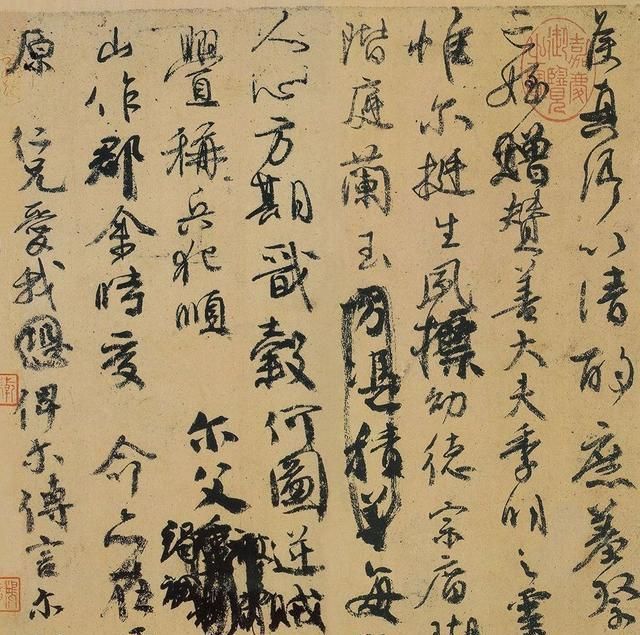 侯真卿以清酌庶羞祭
亡姪贈贊善大夫季明之靈
惟尔挺生夙標幼德宗廟瑚
階庭蘭玉方憑積善每
人心方期戩穀何圖逆賊
舋稱兵犯順 尔父竭誠
山作郡余時受 命亦在
原 仁兄愛我恐俾尔傳言尔
嘉慶御覽之寶